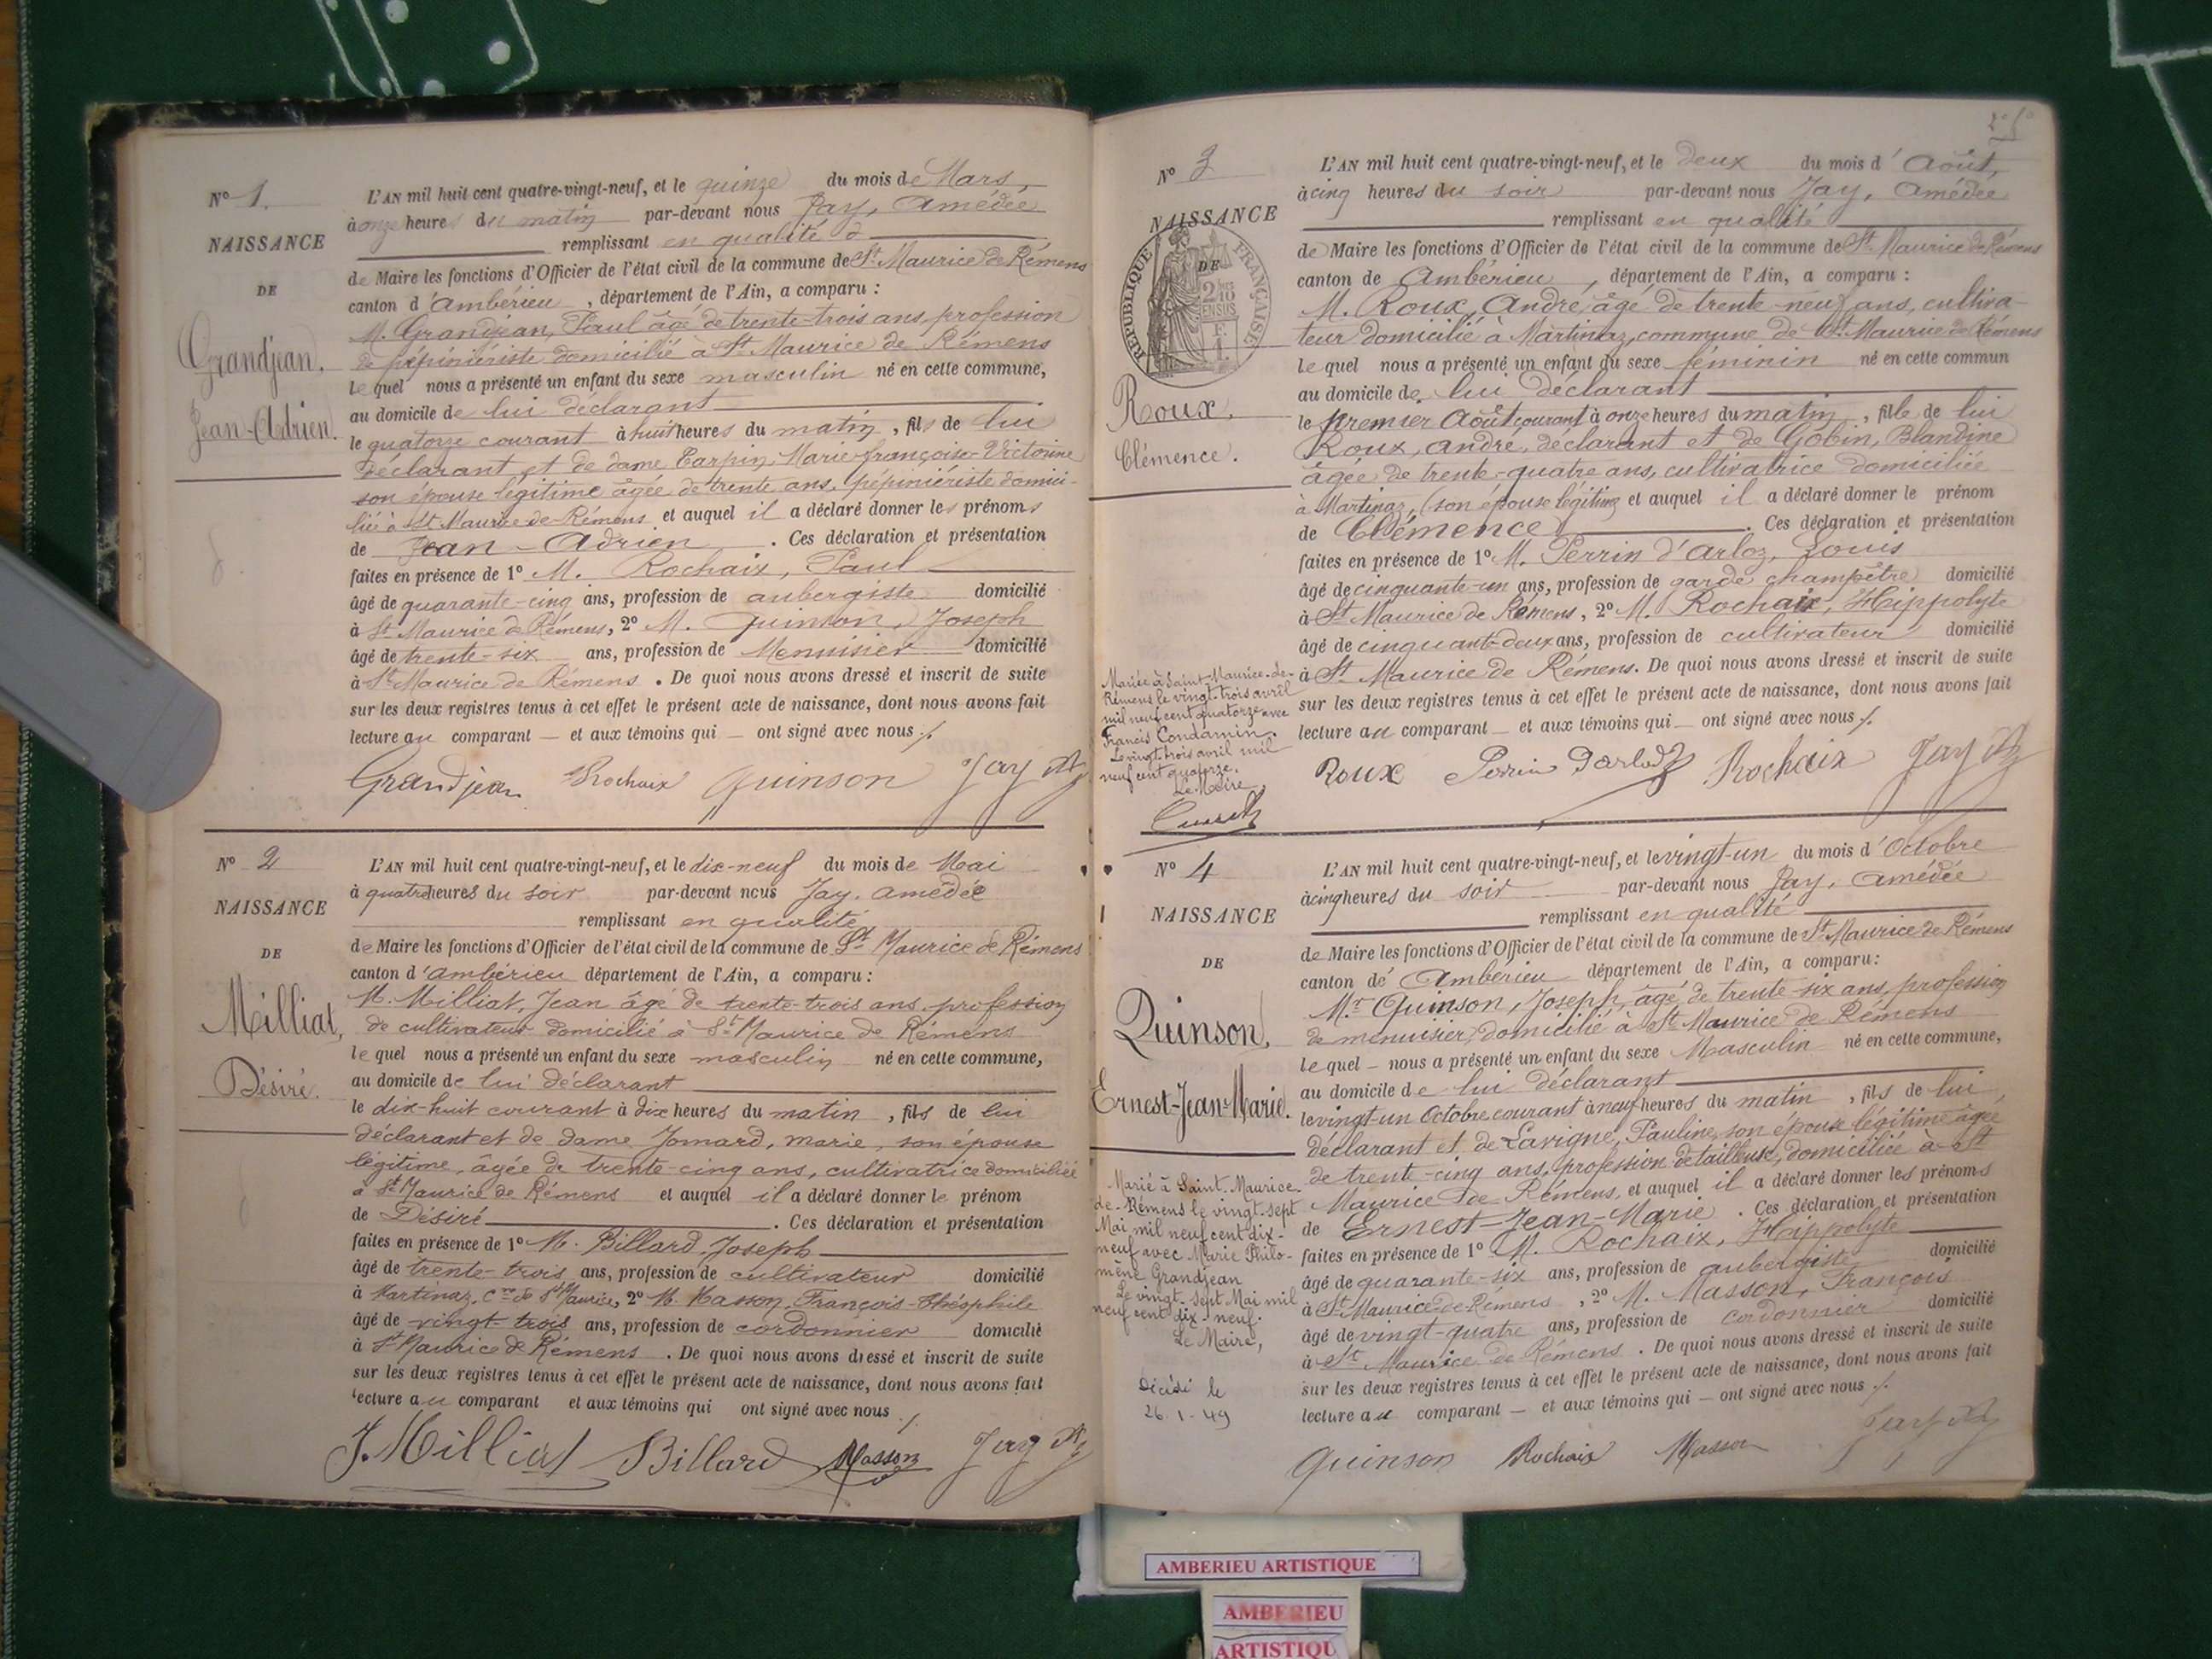 Nº 1.
NAISSANCE
DE
Grandjean,
Jean-Adrien.
L'AN mil huit cent quatre-vingt-neuf, et le quinze du mois de Mars,
à onze heures du matin par-devant nous Jay, Amédée
remplissant en qualité d
de Maire les fonctions d'Officier de l'état civil de la commune de St Maurice de Rémens
canton d'Ambérieu, département de l'Ain, a comparu :
M. Grandjean, Paul âgé de trente-trois ans, profession
de pépiniériste domicilié à St Maurice de Rémens
lequel nous a présenté un enfant du sexe masculin né en cette commune,
au domicile de lui déclarant
le quatorze courant à huit heures du matin, fils de lui
déclarant et de dame Carpin, Marie-françoise-Victorine
son épouse légitime âgée de trente ans, pépiniériste domici-
liée à St Maurice de Rémens et auquel il a déclaré donner les prénoms
de Jean-Adrien. Ces déclaration et présentation
faites en présence de 1º M. Rochaix, Paul
âgé de quarante-cinq ans, profession de aubergiste domicilié
à St Maurice de Rémens, 2º M. Quinson, Joseph
âgé de trente-six ans, profession de Menuisier domicilié
à St Maurice de Rémens. De quoi nous avons dressé et inscrit de suite
sur les deux registres tenus à cet effet le présent acte de naissance, dont nous avons fait
lecture au comparant — et aux témoins qui — ont signé avec nous ./.
Grandjean Rochaix Quinson Jay
Nº 2
NAISSANCE
DE
Milliat,
Désiré.
L'AN mil huit cent quatre-vingt-neuf, et le dix-neuf du mois de Mai
à quatre heures du soir par-devant nous Jay, amédée
remplissant en qualité
de Maire les fonctions d'Officier de l'état civil de la commune de St Maurice de Rémens
canton d'ambérieu département de l'Ain, a comparu :
M. Milliat, Jean âgé de trente-trois ans, profession
de cultivateur domicilié à St Maurice de Rémens
lequel nous a présenté un enfant du sexe masculin né en cette commune,
au domicile de lui déclarant
le dix-huit courant à dix heures du matin, fils de lui
déclarant et de dame Jomard, marie, son épouse
légitime, âgée de trente-cinq ans, cultivatrice domiciliée
à St Maurice de Rémens et auquel il a déclaré donner le prénom
de Désiré. Ces déclaration et présentation
faites en présence de 1º M. Billard, Joseph
âgé de trente-trois ans, profession de cultivateur domicilié
à Martinaz, Cne de St Maurice, 2º M. Masson, François-Théophile
âgé de vingt-trois ans, profession de cordonnier domicilié
à St Maurice de Rémens. De quoi nous avons dressé et inscrit de suite
sur les deux registres tenus à cet effet le présent acte de naissance, dont nous avons fait
lecture au comparant et aux témoins qui ont signé avec nous ./.
J. Milliat Billard Masson Jay
Nº 3
NAISSANCE
DE
RÉPUBLIQUE FRANÇAISE
Roux,
Clémence.
L'AN mil huit cent quatre-vingt-neuf, et le deux du mois d'Août,
à cinq heures du soir par-devant nous Jay, Amédée
remplissant en qualité
de Maire les fonctions d'Officier de l'état civil de la commune de St Maurice de Rémens
canton de Ambérieu, département de l'Ain, a comparu :
M. Roux, André, âgé de trente-neuf ans, cultiva-
teur domicilié à Martinaz, commune de St Maurice de Rémens
lequel nous a présenté un enfant du sexe féminin né en cette commun
au domicile de lui déclarant
le premier Août courant à onze heures du matin, fille de lui
Roux, andré, déclarant et de Gobin, Blandine
âgée de trente-quatre ans, cultivatrice domiciliée
à Martinaz, (son épouse légitime et auquel il a déclaré donner le prénom
de Clémence. Ces déclaration et présentation
faites en présence de 1º M. Perrin d'arloz, Louis
âgé de cinquante-un ans, profession de garde champêtre domicilié
à St Maurice de Rémens, 2º M. Rochaix, Hippolyte
âgé de cinquant-deux ans, profession de cultivateur domicilié
à St Maurice de Rémens. De quoi nous avons dressé et inscrit de suite
sur les deux registres tenus à cet effet le présent acte de naissance, dont nous avons fait
lecture au comparant — et aux témoins qui — ont signé avec nous ./.
Roux Perrin Darloz Rochaix Jay
Mariée à Saint-Maurice-de-
Rémens le vingt-trois avril
mil neuf cent quatorze avec
Francis Condamin.
Le vingt-trois avril mil
neuf cent quatorze.
Le Maire,
Nº 4
NAISSANCE
DE
Quinson,
Ernest-Jean-Marie.
L'AN mil huit cent quatre-vingt-neuf, et le vingt-un du mois d'Octobre
à cinq heures du soir par-devant nous Jay, Amédée
remplissant en qualité
de Maire les fonctions d'Officier de l'état civil de la commune de St Maurice de Rémens
canton de Ambérieu département de l'Ain, a comparu :
Mr Quinson, Joseph, âgé de trente-six ans, profession
de menuisier, domicilié à St Maurice de Rémens
lequel — nous a présenté un enfant du sexe Masculin né en cette commune,
au domicile de lui déclarant
le vingt-un Octobre courant à neuf heures du matin, fils de lui,
déclarant et de Lavigne, Pauline, son épouse légitime âgée
de trente-cinq ans, profession de tailleuse, domiciliée à St
Maurice de Rémens, et auquel il a déclaré donner les prénoms
de Ernest-Jean-Marie. Ces déclaration et présentation
faites en présence de 1º M. Rochaix, Hippolyte
âgé de quarante-six ans, profession de aubergiste domicilié
à St Maurice de Rémens, 2º M. Masson, François
âgé de vingt-quatre ans, profession de cordonnier domicilié
à St Maurice de Rémens. De quoi nous avons dressé et inscrit de suite
sur les deux registres tenus à cet effet le présent acte de naissance, dont nous avons fait
lecture au comparant — et aux témoins qui — ont signé avec nous ./.
Quinson Rochaix Masson Jay
Marié à Saint-Maurice-
de-Rémens le vingt-sept
Mai mil neuf cent dix-
neuf avec Marie Philo-
mène Grandjean
Le vingt-sept Mai mil
neuf cent dix-neuf.
Le Maire,
Décédé le
26.1.49
AMBERIEU ARTISTIQUE
AMBERIEU
ARTISTIQU